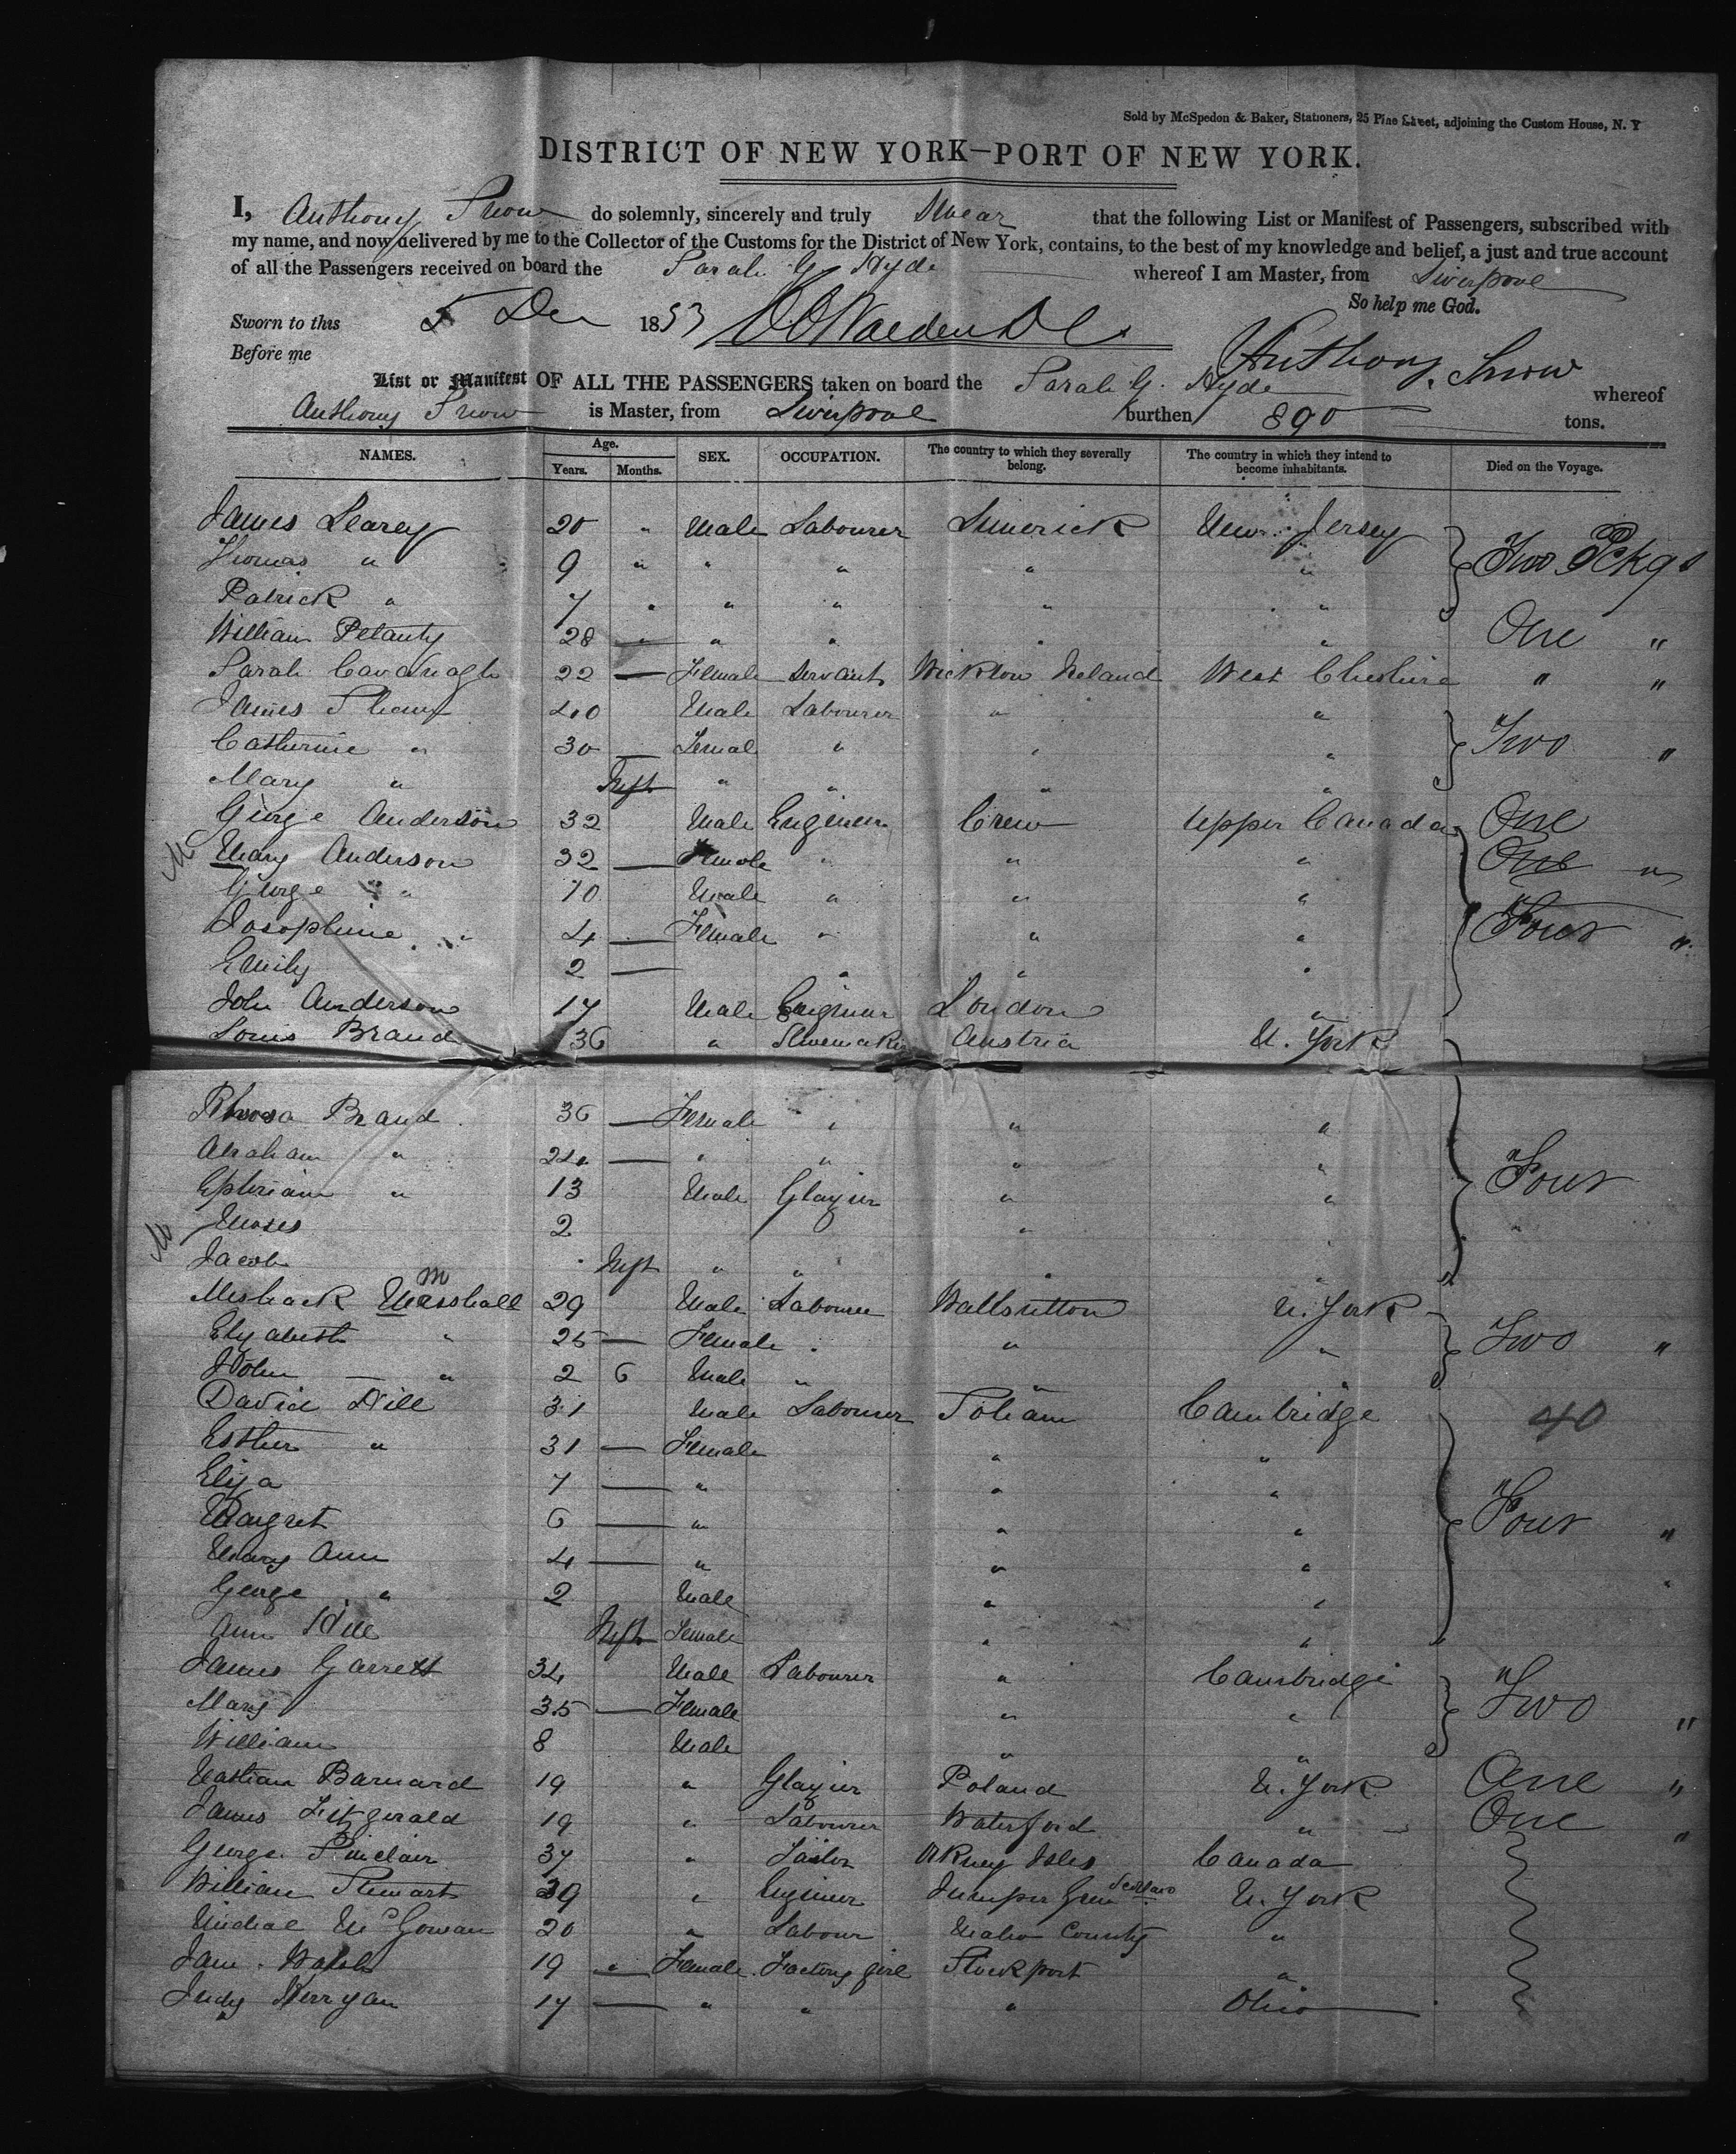 Sold by McSpedon & Baker, Stationers, 25 Pine Street, adjoining the Custom House, N. Y
DISTRICT OF NEW YORK—PORT OF NEW YORK.
I, Anthony Snow do solemnly, sincerely and truly Swear that the following List or Manifest of Passengers, subscribed with
my name, and now delivered by me to the Collector of the Customs for the District of New York, contains, to the best of my knowledge and belief, a just and true account
of all the Passengers received on board the Sarah G Hyde whereof I am Master, from Liverpool
So help me God.
Sworn to this 5 Dec 1853
Before me
Anthony Snow
List or Manifest OF ALL THE PASSENGERS taken on board the Sarah G. Hyde whereof
Anthony Snow is Master, from Liverpool burthen 890 tons.
NAMES. Age. Years. Months. SEX. OCCUPATION. The country to which they severally belong. The country in which they intend to become inhabitants. Died on the Voyage.
James Learey 20 " Male Labourer Limerick New Jersey
Thomas " 9 " " " " " Two Pckgs
Patrick " 7 " " " " "
William 28 " " " " " One "
Sarah Cavanagh 22 — Female Servant Wicklow Ireland West Cheshire " "
James 40 Male Labourer " "
Catherine " 30 — Femal " " " Two "
Mary " Inft " " " "
George Anderson 32 Male Engineer Crew Upper Canada One
Mary Anderson 32 — Female " " " One "
George " 10 Male " " "
Josephine " 4 — Female " " " Four "
Emily 2 — " " "
John Anderson 17 Male Engineer London "
Louis Brand 36 " Shoemaker Austria N. York
Brand 36 — Female " " "
Abraham " 24 — " " " "
Ephriam " 13 Male Glazier " " Four
Moses 2 "
Jacob Inft " " " "
Meshack Marshall 29 Male Labourer N. York
M
Elyabeth " 25 — Female " " " Two "
John — " 2 6 Male " "
David Hill 31 Male Labourer Soham Cambridge 40
Esther " 31 — Female " "
Eliza 7 — " " "
Margret 6 — " " " Four "
Mary Ann 4 — " " "
George " 2 Male " "
Ann Hill Inft Female " "
James Garrett 34 Male Labourer " Cambridge
Mary 35 — Female " " Two "
William 8 Male " "
Nathan Barnard 19 " Glazier Poland N. York One "
James Fitzgerald 19 " Labourer Waterford " One "
George Sinclair 37 " Tailor Orkney Isles Canada
William Stewart 39 " Engineer Juniper Green Scotland N. York
Micheal McGowan 20 " Labour County "
Jane Walsh 19 — Female Factory girl Stockport "
Judy 17 — " " " Ohio